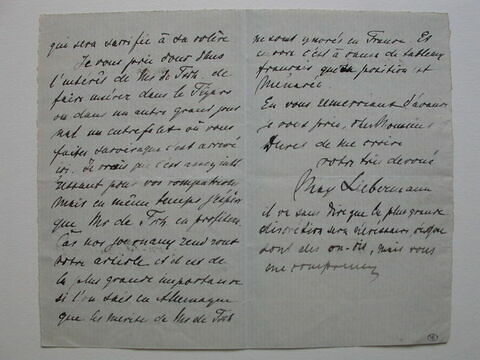 qui sera sacrifié à sa colère
Je vous prie donc dans
l'intérêt de Mr de Tsch. de
faire insérer dans le Figaro
ou dans un autre grand jour
nal un entrefilet où vous
faites savoir que c'est arrivé
ici. Je crois que c'est assez inté
ressant pour vos compatriotes
mais en même temps j'espère
que Mr de Tsch en profitera.
Car nos journaux rendront
votre article et il est de
la plus grande importance
si l'on sait en Allemagne
que les mérites de Mr de Tsch
ne sont ignorés en France. Et
c'est à cause de tableaux
français que sa position est
menacée.
En vous remerciant d'avance
je vous prie, cher Monsieur
Duret de me croire
votre très dévoué
Max Liebermann
il va sans dire que la plus grande
discrétion sera nécessaire, ce que
sont des on-dit, mais vous
me comprenez